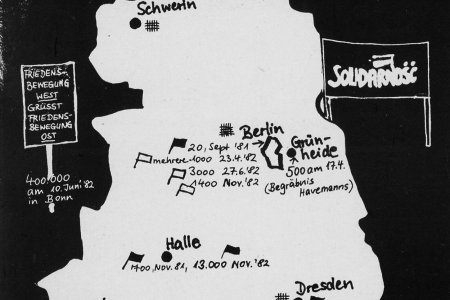 Schwerin
FRIEDENS-
BEWEGUNG
WEST
GRÜSST
FRIEDENS-
BEWEGUNG
OST
400.000
am 10. Juni '82
in Bonn
SOLIDARNOŚĆ
Berlin
20, Sept '81
mehrere 1000 23.4.'82
3000 27.6.'82
1400 Nov.'82
Grün-
heide
500 am 17.4.
(Begräbnis
Havemanns)
Halle
Nov. 81, 13.000 Nov.'82
Dresden